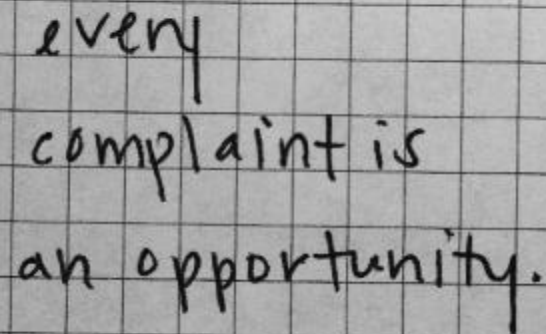 every
complaint is
an opportunity.